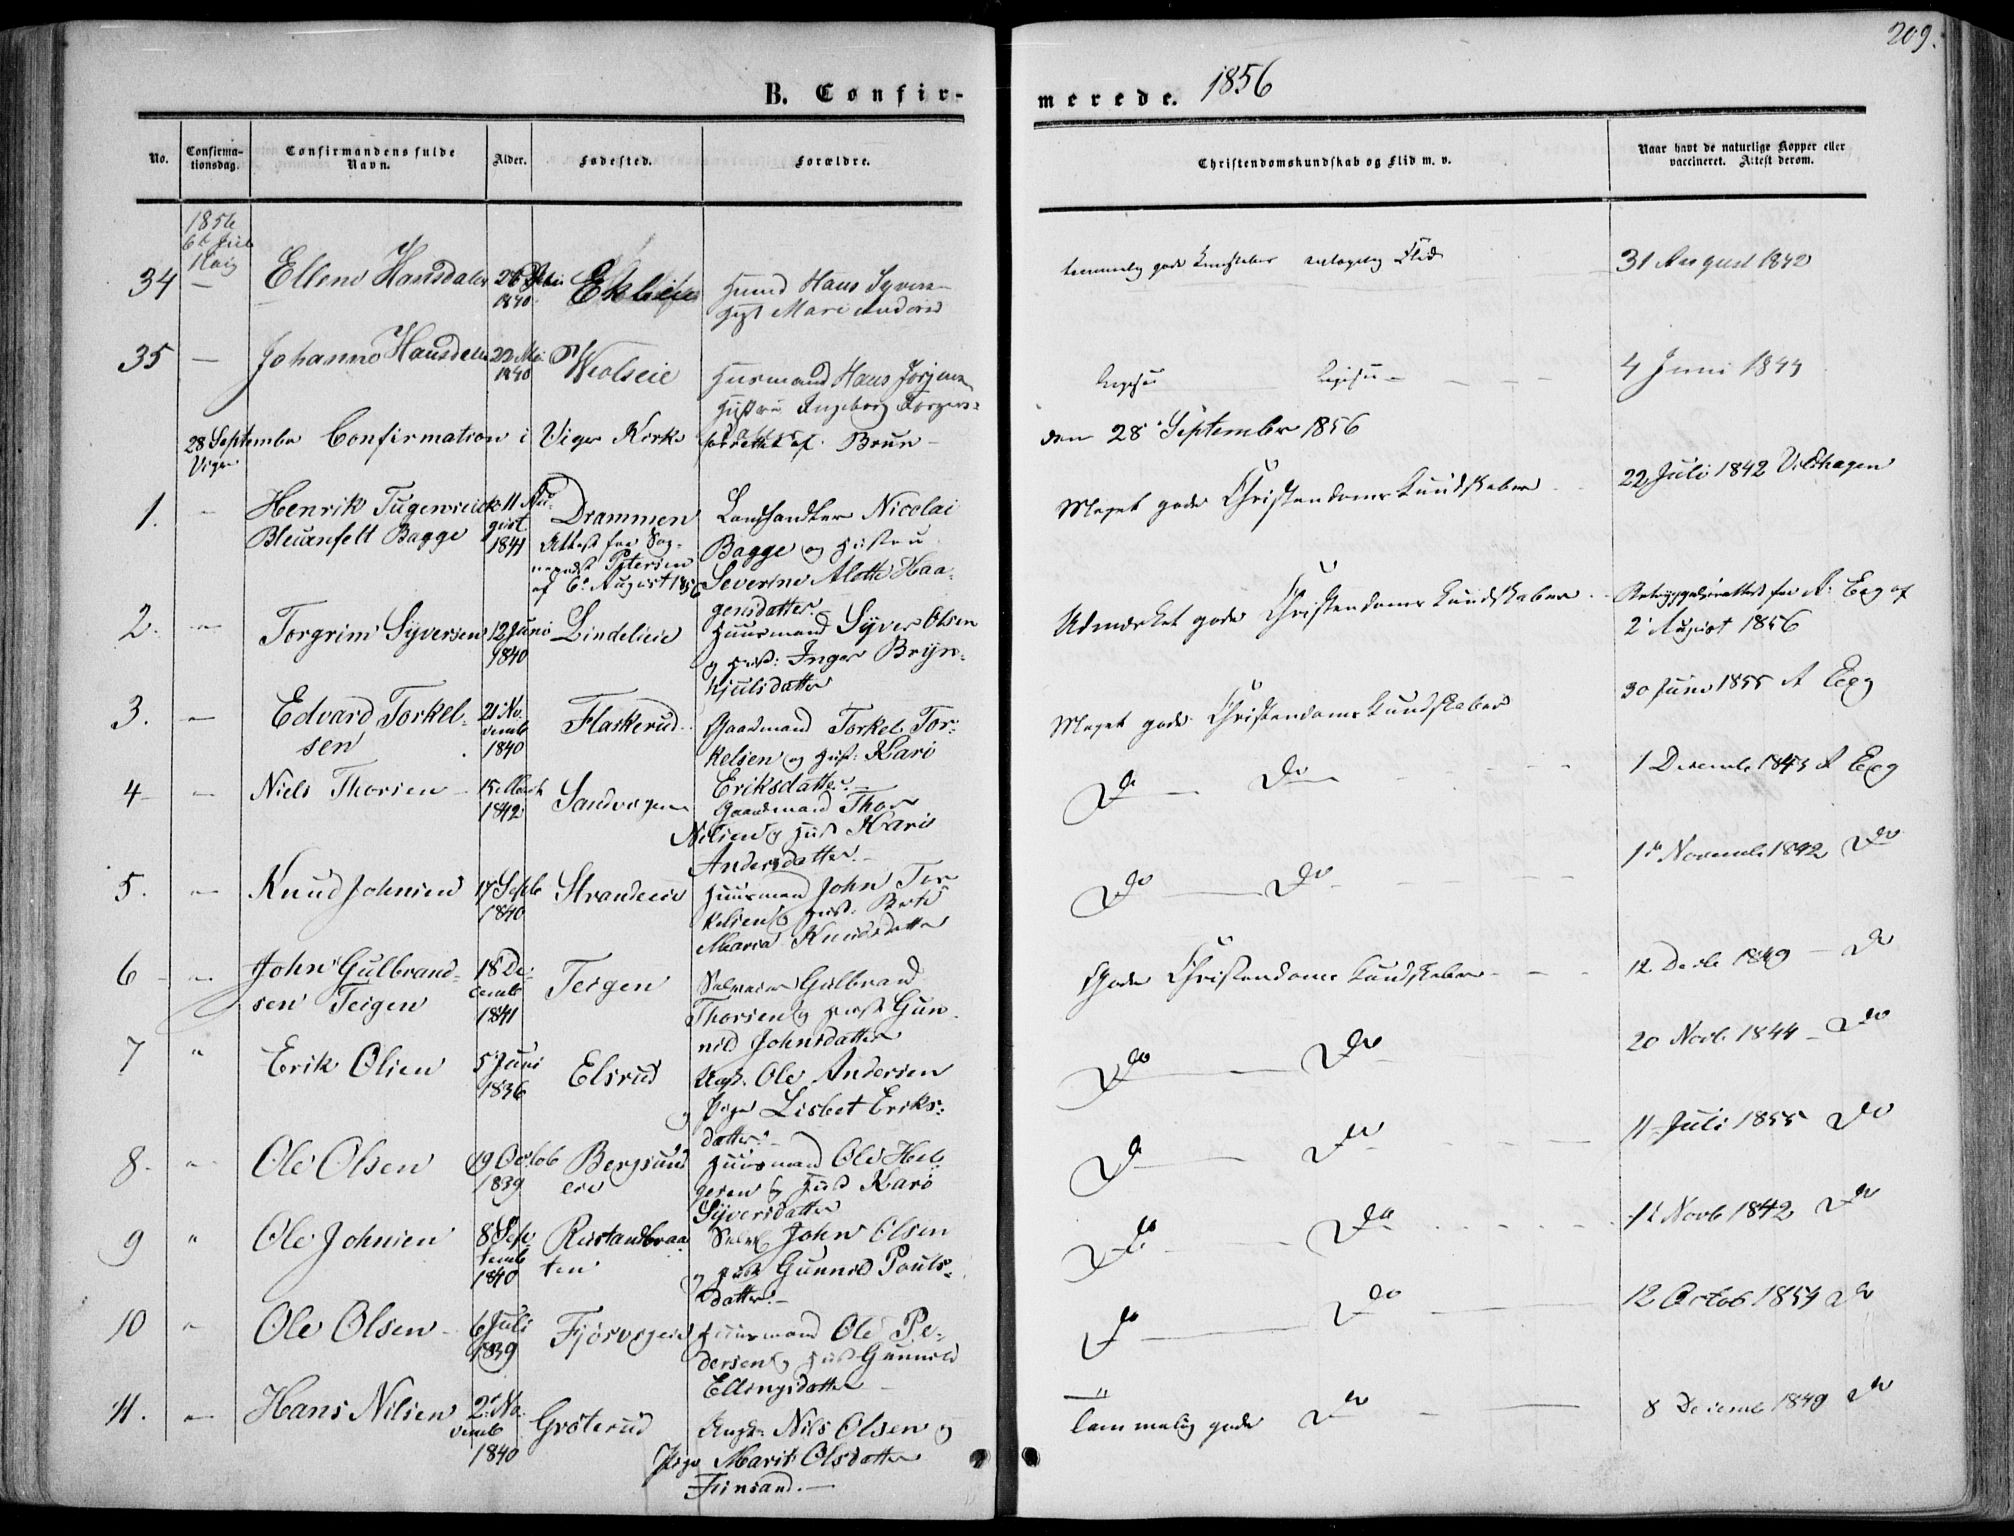 209.
B. Confir-
merede. 1856
No.
Confirma-
tionsdag.
Confirmandens fulde
Navn.
Alder.
Fødested.
Forældre.
Christendomskundskab og Flid m. v.
Naar havt de naturlige Kopper eller
vaccineret. Attest derom.
1856
34 — Ellene Hansdatter 26
1840 Ekleeie Huusmd Hans Syvers-
Mari
31 August 1842
35 — Johanne Hansdatter 22 Mai
1840 Huusmand Hans Jørgens
Hustru Ingeborg
4 Juni 1844
28 September Confirmation i Viger Kirke forrettet af Brun —
den 28 September 1856
Viger
1. Henrik Tugenreick
Bleuenfelt Bagge
11 Au-
gust
1841
Drammen
Attest fra Sog-
nepræst Petersen
af 6 August 1856
Landhandler Nicolai
Bagge og Hustru
Severine Alette Haa-
gensdatter.
Meget gode Christendoms Kundskaber
22 Juli 1842 Vildhagen
2. — Torgrim Syversen
12 Juni
1840
Lindelieie
Huusmand Syver Olsen
og Hust: Inger Bryn-
hjulsdatter
Udmærket gode Christendoms Kundskaber
fra A. Eeg af
2 August 1856
3. — Edvard Torkel-
sen
21 No-
vemb
1840
Flaskerud
Gaardmand Torkel Tor-
kelsen og Hust: Kari
Eriksdatter.
Meget gode Christendoms Kundskaber
30 Juni 1855 A Eeg
4 — Niels Thorsen
15 March
1842
Sandvigen
Gaardmand Thor
Nilsen og Hust Kari
Andersdatter.
Do — Do
1 Decemb 1843 A Eeg
5. — Knud Johnsen
17 Septb
1840
Strandeeie
Huusmand John Tor-
kelsen og Hust. Berte
Maria Knudsdatter
Do — Do
1 Novemb 1842 Do
6 — John Gulbrand-
sen Teigen
18 De-
cemb
1841
Teigen
Selveier Gulbrand
Thorsen og Hust Gun-
nild Johnsdatter
Gode Christendoms Kundskaber
12 Decb 1849 — Do
7 " Erik Olsen
5 Juni
1836
Elsrud
Ungk. Ole Andersen
og Pige Lisbet Eriks-
datter.
Do — Do
20 Novb 1844 — Do
8 — Ole Olsen
19 Octob
1839
Bergsund
eie
Huusmand Ole Hel-
gesen og Hust Kari
Syversdatter
Do — Do
11 Juli 1855 Do
9 " Ole Johnsen
8 Sep-
temb
1840
Rustandbraa-
ten
Selv. John Olsen
og Hust Gunnild Pouls-
datter.
Do — Do
12 Novb 1842 Do
10 " Ole Olsen
6 Juli
1839
Huusmand Ole Pe-
dersen og Hust Gunnild
Ellingsdatter
Do — Do
12 Octob 1854 Do
11. — Hans Nilsen
2 No-
vemb
1840
Grøterud
Ungk. Nils Olsen og
Pige Marit Olsdatter
Finsand.
Temmelig gode Do
8 Decemb 1849 Do